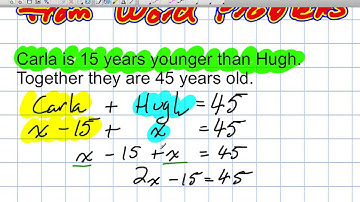 from Word Problems
Carla is 15 years younger than Hugh.
Together they are 45 years old.
Carla + Hugh = 45
x - 15 + x = 45
x - 15 + x = 45
2x - 15 = 45